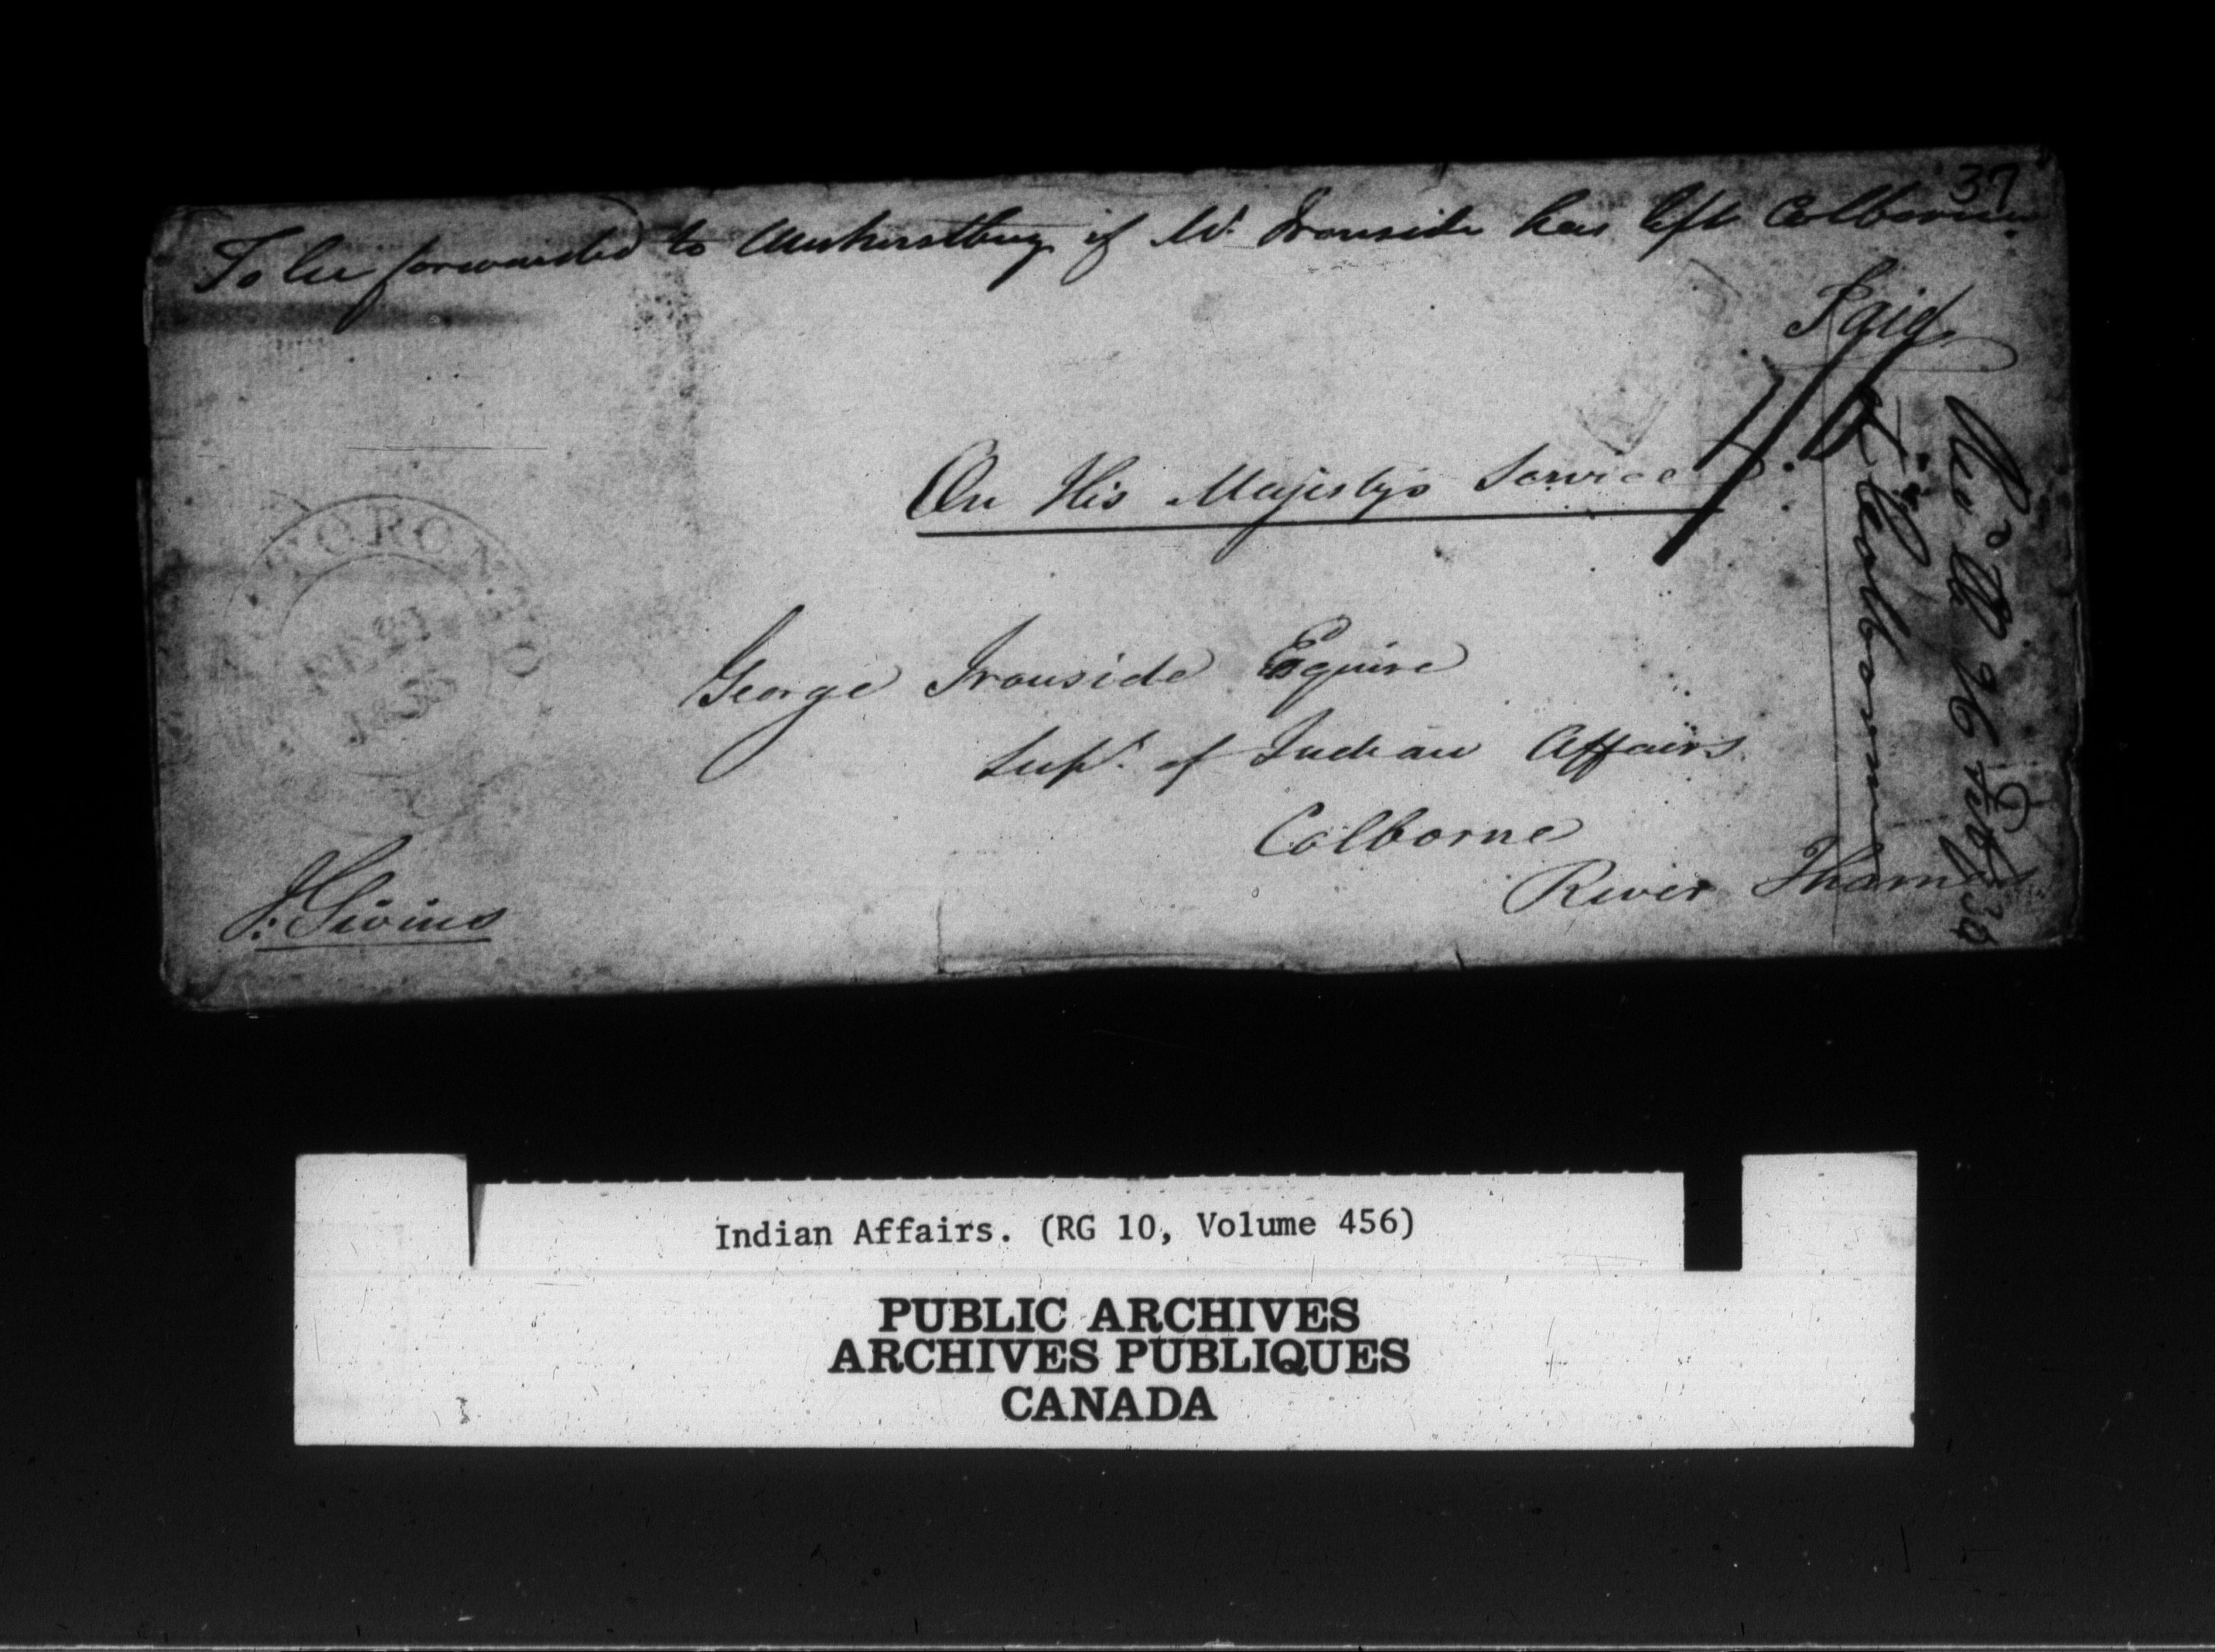 37
To be forwarded to Amherstburg if Mr. Ironside has left Colborne.
Paid
1/6
On His Majesty's Service
TORONTO
George Ironside Esquire
Supt. of Indian Affairs
Colborne
River Thames
J: Givins
at Colborne
Indian Affairs. (RG 10, Volume 456)
PUBLIC ARCHIVES
ARCHIVES PUBLIQUES
CANADA